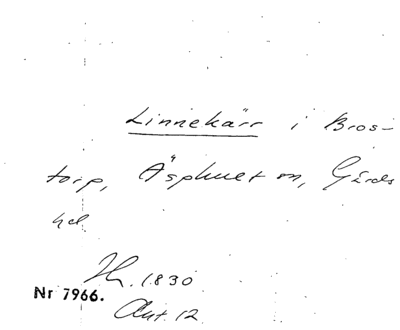 Linnekärr i Bros-
torp, Äsphult sn, Gärds
hd
Hh. 1830
Nr 7966.
Akt. 12